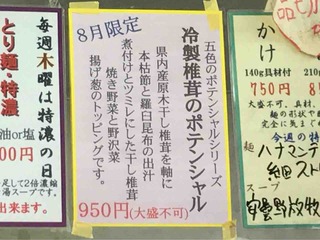 8月限定
五色のポテンシャルシリーズ
冷製椎茸のポテンシャル
県内産原木干し椎茸を軸に
本枯節と羅臼昆布の出汁
煮付けとツミレにした干し椎茸
焼き野菜と野沢菜
揚げ葱のトッピングです。
950円(大盛不可)
毎週木曜は特濃の日
とり麺・特濃
油or塩
00円
足して2倍濃縮
湯スープです。
出来ます。
品切
かけ
140g具材付
750円
210g
8
大盛不可。具材
麺の形状や
完全に先まで
今週の特
ハナマンテ
細ストレ
スープ
安曇野放牧